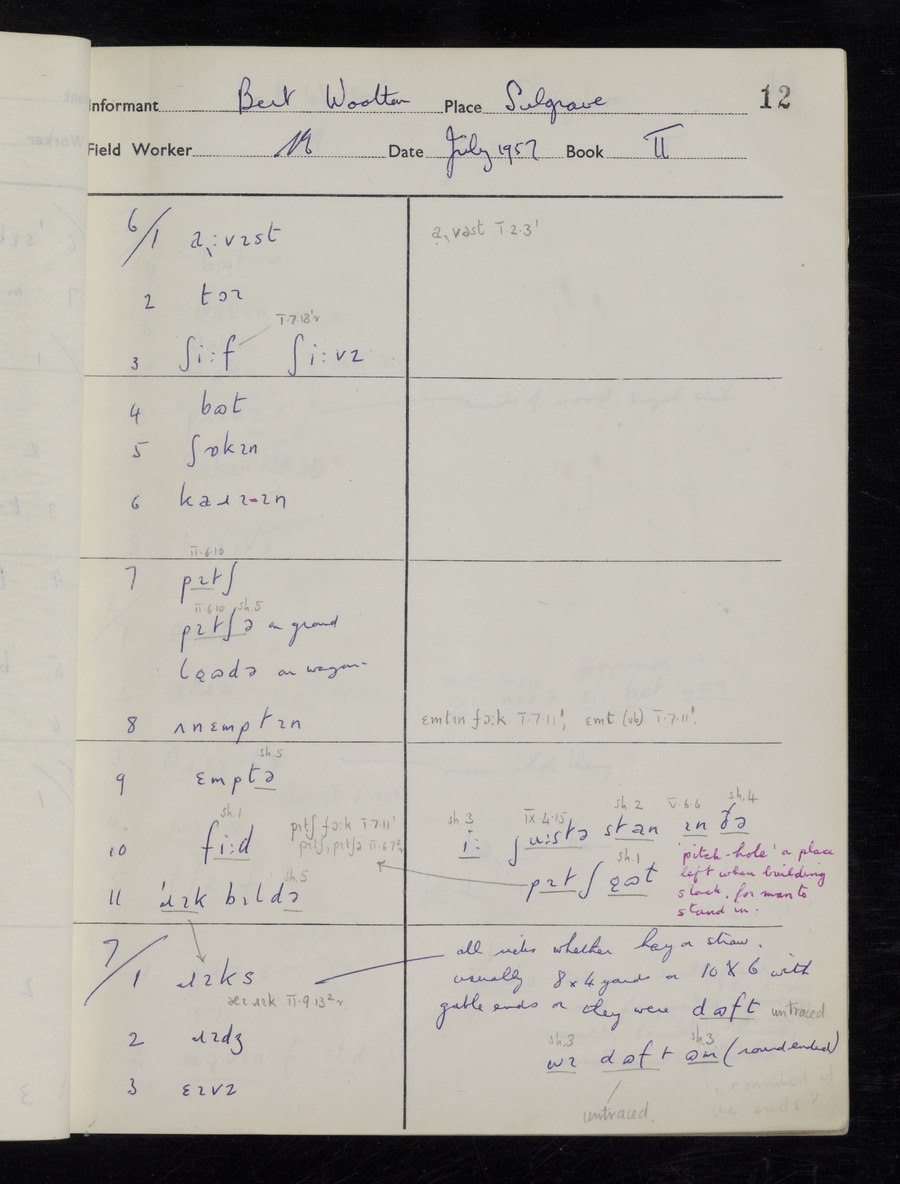 Informant Bert Woolton Place Sulgrave 12
Field Worker Date July 1957 Book II
6/1 a:vɪst
a vast I.2.3'
2 tɔɪ
I.7.18'r
3 ʃi:f ʃi:vz
4 bɷt
5 ʃɒkɪn
6 kaɹɪ-ɪn
II.6.10
7 pɪtʃ
II.6.10 sh.5
pɪtʃə on ground
lɷdə on wagon-
8 ʌnemptɪn
ɛmtɪn fɔ:k I.7.11', ɛmt (vb) I.7.11'.
sh.5
9 ɛmptə
sh.1
10 fi:d
pɪtʃ fɔ:k I.7.11'
pɪtʃ, pɪtʃə II.6.7
sh.3 IX.4.15 sh.2 V.6.6 sh.4
i: ʃ u:ɪstə stan ɪn ðə
sh.1
pɪtʃ ɷt
'pitch-hole' a place
left when building
stack, for man to
stand in.
sh.5
11 'ɹɪk bɪldə
7/1 ɹɪks
ɹɪk II.9.13²r
all ricks whether hay or straw.
usually 8 x 4 yards or 10 x 6 with
gable ends or they were dɷft untraced
2 ɹɪdʒ
sh.3 sh.3
wɪ dɷft ɷm (round ended)
3 ɛɪvz
untraced.
, rounded at
the ends?